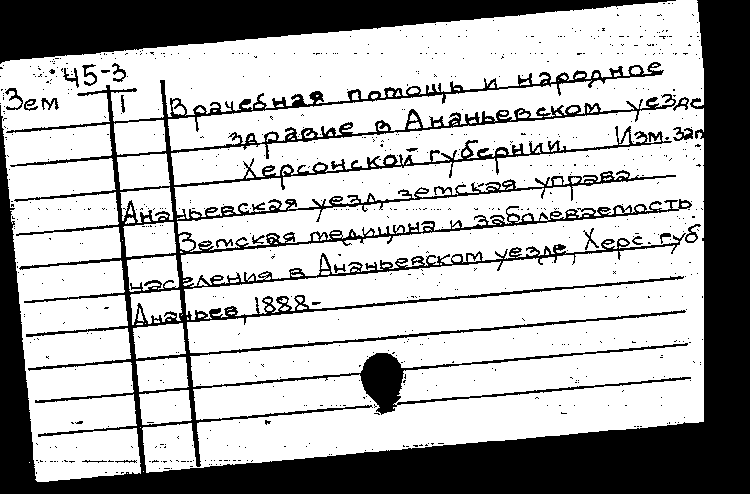 45-3
Зем I Врачебная помощь и народное
здравие в Ананьевском уезде
Херсонской губернии. Изм. заг
Ананьевская уезд, земская управа.
Земская медицина и заболеваемость
населения в Ананьевском уезде, Херс. губ.
Ананьев, 1888-